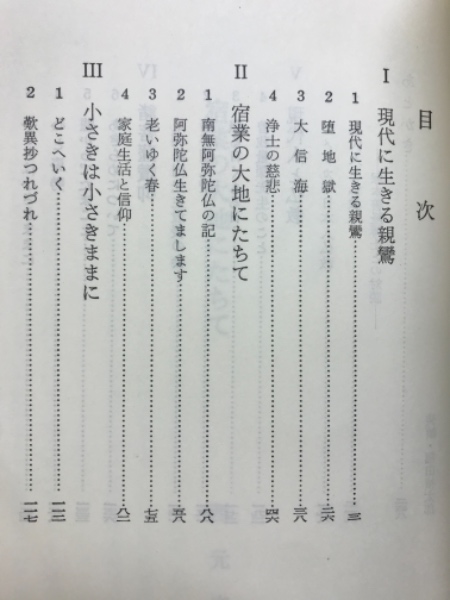 目次
I 現代に生きる親鸞
1 現代に生きる親鸞
2 堕地獄
3 大信海
4 浄土の慈悲
II 宿業の大地にたちて
1 南無阿弥陀仏の記
2 阿弥陀仏生きてまします
3 老いゆく春 七五
4 家庭生活と信仰
III 小さきは小さきままに
1 どこへいく
2 歎異抄つれづれ